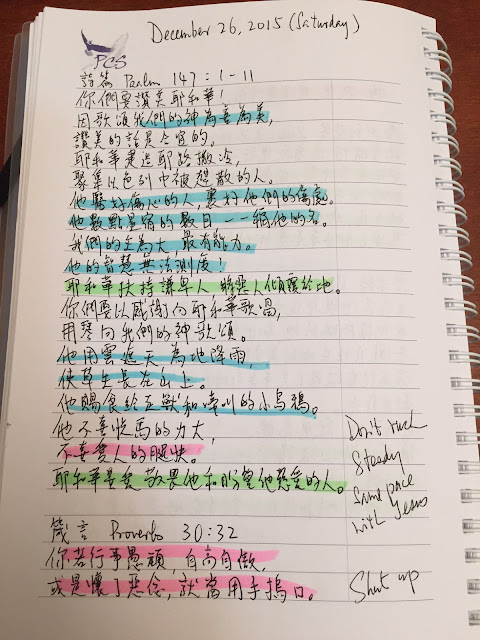 December 26, 2015 (Saturday)
PCS
詩篇 Psalm 147:1-11
你們要讚美耶和華!
因歌頌我們的神為善為美,
讚美的話是合宜的。
耶和華建造耶路撒冷,
聚集以色列中被趕散的人。
他醫好傷心的人,裹好他們的傷處。
他數點星宿的數目——稱他的名。
我們的主為大 最有能力。
他的智慧無法測度!
耶和華扶持謙卑人 將惡人傾覆於地。
你們要以感謝向耶和華歌唱,
用琴向我們的神歌頌。
他用雲遮天 為地降雨,
使草生長在山上。
他賜食給走獸和啼叫的小烏鴉。
他不喜悅馬的力大,
不喜愛人的腿快。
耶和華喜愛敬畏他和盼望他慈愛的人。
Don't rush
Steady
Same pace
with Jesus
箴言 Proverbs 30:32
你若行事愚頑,自高自傲,
或是懷了惡念,就當用手摀口。
Shut up